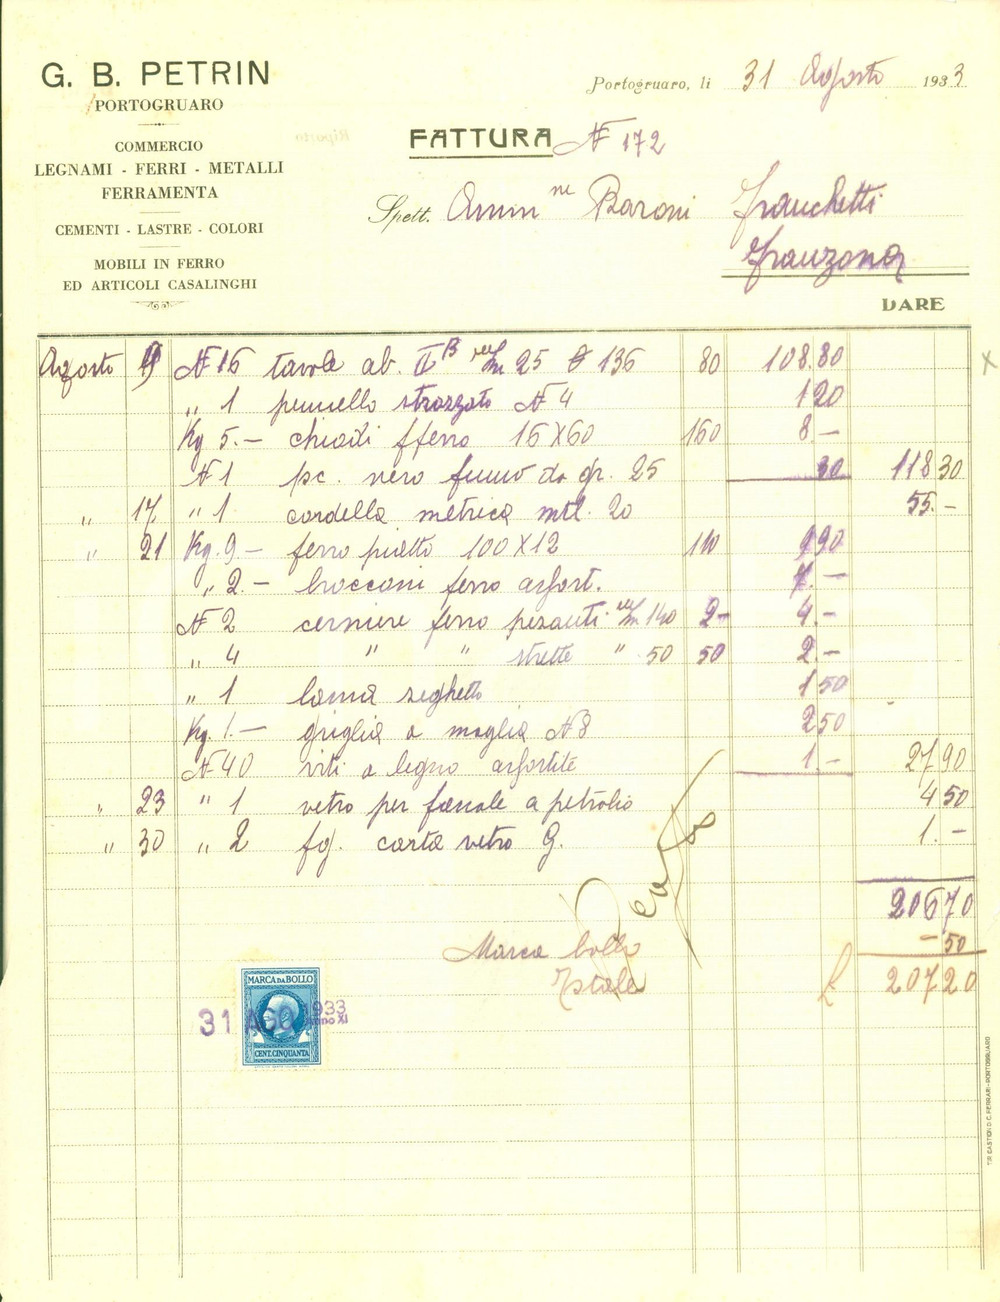 G. B. PETRIN
PORTOGRUARO
COMMERCIO
LEGNAMI - FERRI - METALLI
FERRAMENTA
CEMENTI - LASTRE - COLORI
MOBILI IN FERRO
ED ARTICOLI CASALINGHI
Portogruaro, li 31 Agosto 1933
FATTURA N 172
Spett. Amm ne Baroni Franchetti
Franzona
DARE
Agosto 9 N 16 tavole ab. II B 25 136 80 108.80
" 1 pennello strozzato N 4 1 20
Kg 5.- chiodi fferro 16 X 60 160 8.-
N 1 pc. nero fumo da gr. 25 30 118 30
" 17 " 1 cordella metrica mtl. 20 55.-
" 21 Kg. 9- ferro piatto 100 X 12 110 9 90
" 2.- brocconi ferro assort. 7.-
N 2 cerniere ferro pesanti 140 2- 4.-
" 4 " " strette " 50 50 2.-
" 1 lama seghetto 1 50
Kg. 1.- griglia a maglia N 8 2 50
N 40 viti a legno assortite 1.- 27 90
" 23 " 1 vetro per fanale a petrolio 4 50
" 30 " 2 fg. carta vetro G. 1.-
206 70
Marca bollo - 50
Totale £ 207 20
MARCA DA BOLLO
CENT. CINQUANTA
31 AGO 1933
Anno XI